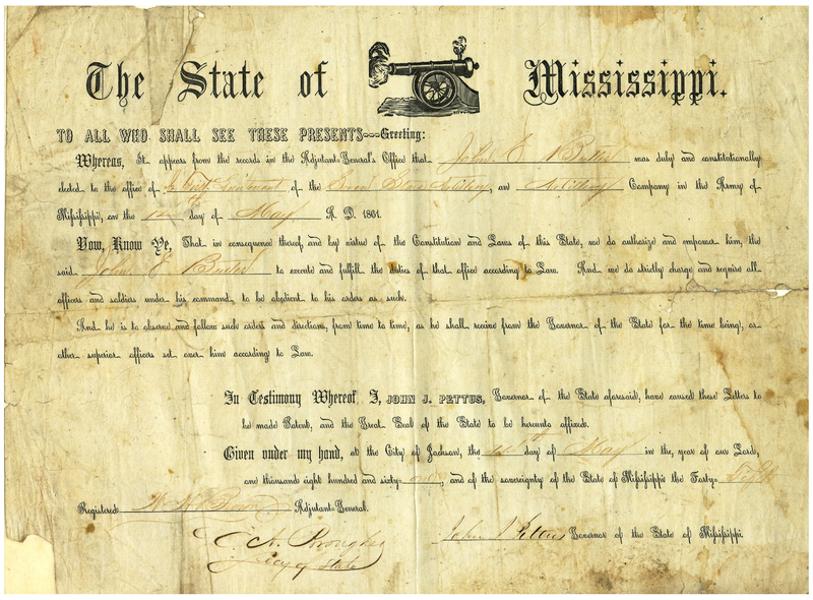 The State of Mississippi.
TO ALL WHO SHALL SEE THESE PRESENTS---Greeting:
Whereas, It appears from the records in the Adjutant-General's Office that John E was duly and constitutionally
elected to the office of First Lieutenant of the Artillery, an Artillery Company in the Army of
Mississippi, on the day of May A. D. 1861.
Now, Know Ye, That in consequence thereof, and by virtue of the Constitution and Laws of this State, we do authorize and empower him, the
said John E to execute and fulfill the duties of that office according to Law. And we do strictly charge and require all
officers and soldiers under his command, to be obedient to his orders as such.
And he is to observe and follow such orders and directions, from time to time, as he shall receive from the Governor of the State for the time being, or
other superior officers set over him according to Law.
In Testimony Whereof I, JOHN J. PETTUS, Governor of the State aforesaid, have caused these Letters to
be made Patent, and the Great Seal of the State to be hereunto affixed.
Given under my hand, at the City of Jackson, the day of May in the year of our Lord,
one thousand eight hundred and sixty-one, and of the sovereignty of the State of Mississippi the Forty-
Registered Adjutant-General.
John J Pettus Governor of the State of Mississippi
C A Brougher
Secy of State